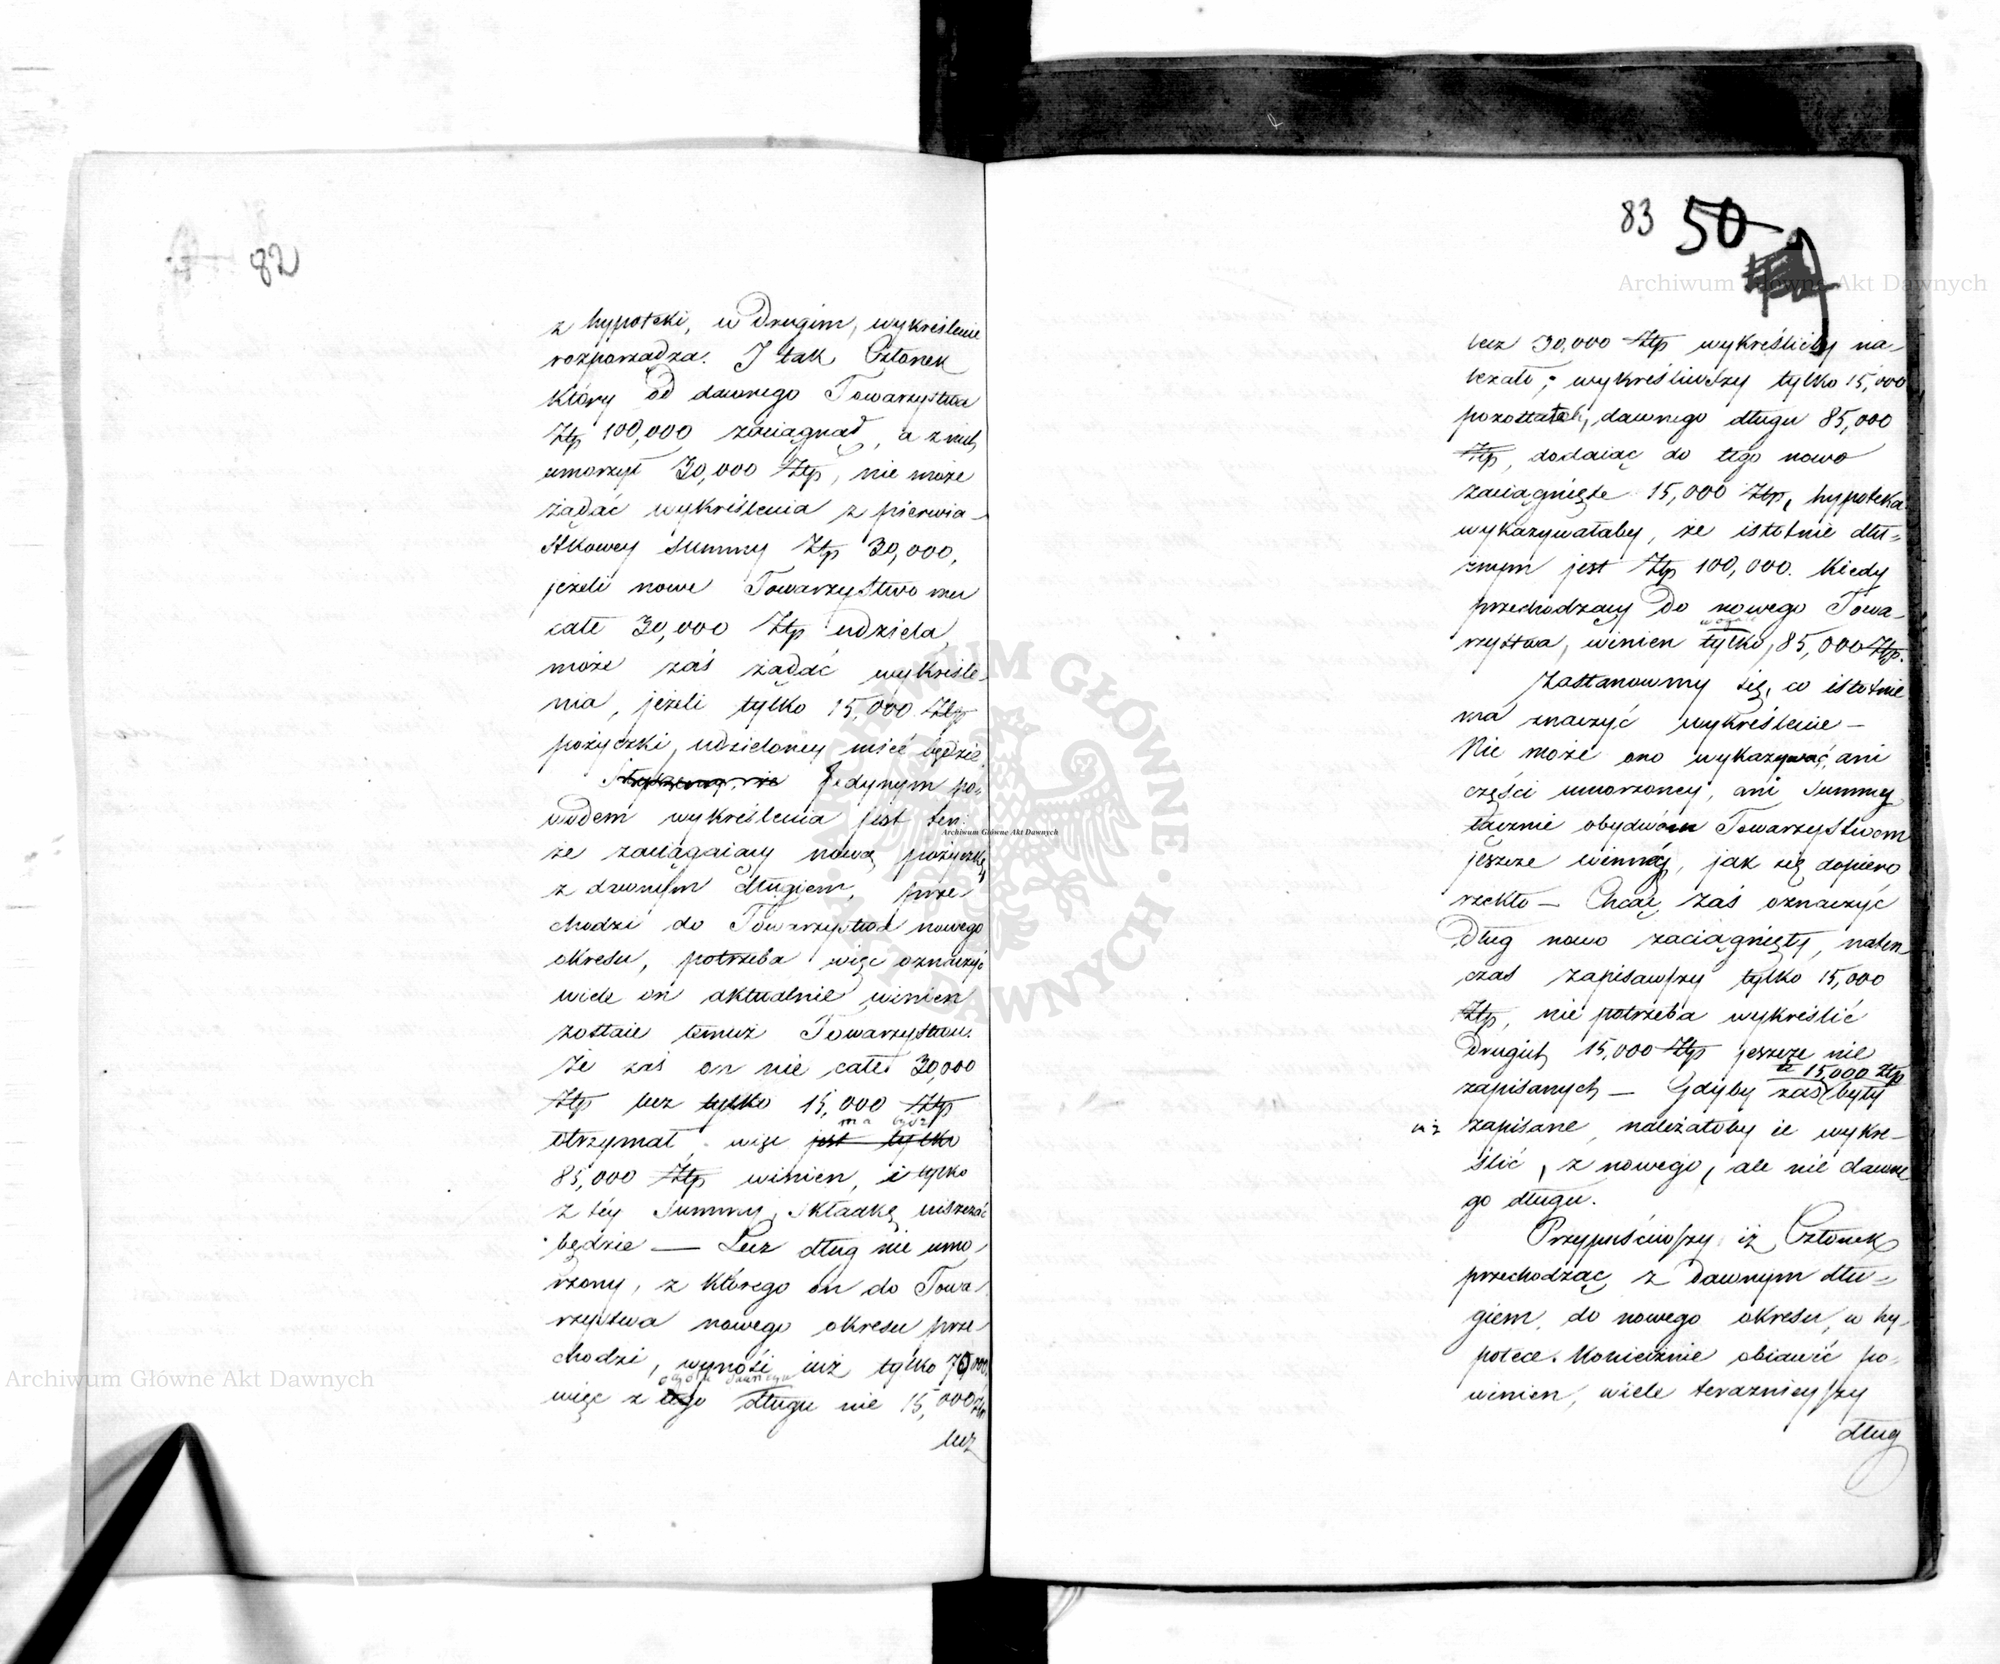 82
z hypoteki, w Drugim, wykreślenie
rozporządza. I tak Członek
który od dawnego Towarzystwa
Złp 100,000 zaciągnął, a z nich
umorzył 30,000 Złp, nie może
żądać wykreślenia z pierwia-
stkowey summy Złp 30,000,
jeżeli nowe Towarzystwo mu
całe 30,000 Złp udziela,
może zaś żądać wykreśle-
nia, jeżeli tylko 15,000 Złp
pożyczki, udzieloney mieć będzie.
Jedynym po-
wodem wykreślenia jest ten:
że zaciągaiący nową pożyczkę
z dawnym długiem, prze-
chodzi do Towarzystwa nowego
okresu, potrzeba więc oznaczyć
wiele on aktualnie winien
zostaie temuż Towarzystwu.
Że zaś on nie całe 30,000
Złp lecz tylko 15,000 Złp
ma być
otrzymał, więc jest tylko
85,000 Złp winien, i tylko
z téy Summy, Składkę uiszczać
będzie — Lecz dług nie umo-
rzony, z którego on do Towa-
rzystwa nowego okresu prze-
chodzi, wynosi iuż tylko 70,000.
ogółu dawnego
więc z tego długu nie 15,000 Złp
lecz
83 50
lecz 30,000 Złp wykreślićby na-
leżało; wykreśliwszy tylko 15,000
pozostałoby, dawnego długu 85,000
Złp, dodaiąc do tego nowo
zaciągnięte 15,000 Złp, hypoteka
wykazywałaby, że istotnie dłu-
żnym jest Złp 100,000. Kiedy
przechodzący Do nowego Towa-
rzystwa, winien tylko, 85,000 Złp.
Zastanowmy się, co istotnie
ma znaczyć wykreślenie —
Nie może ono wykazywać, ani
części umorzoney, ani Summy
łącznie obydwóm Towarzystwom
jeszcze winnéj, jak się dopiero
rzekło — Chcąc zaś oznaczyć
Dług nowo zaciągnięty, naten-
czas zapisawszy tylko 15,000
Złp, nie potrzeba wykreślić
Drugich 15,000 Złp jeszcze nie
te 15,000 Złp
zapisanych — Gdyby zaś były
iuż zapisane, należałoby ie wykre-
ślić, z nowego, ale nie dawne-
go długu.
Przypuściwszy iż Członek
przechodząc z Dawnym dłu-
giem, do nowego okresu, w hy-
potece. Koniecznie obiawić po-
winien, wiele teraznieyszy
dług
Archiwum Główne Akt Dawnych
Archiwum Główne Akt Dawnych
Archiwum Główne Akt Dawnych
ARCHIWUM GŁÓWNE · AKT DAWNYCH ·